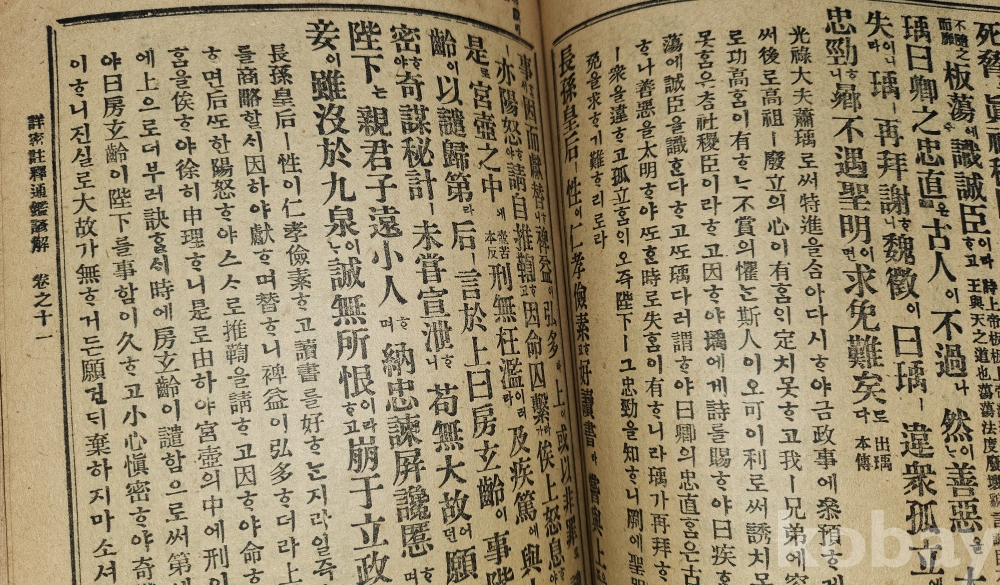 板蕩에識誠臣이라ᄒᆞ고
瑀曰卿之忠直은古人이不過나然이나善惡을太
失이라瑀ㅣ再拜謝ᄒᆞ니魏徵이曰瑀ㅣ違衆孤立
忠勁ᄒᆞ니曏不遇聖明이면求免難矣로다 出瑀本傳
光祿大夫蕭瑀로써特進을合아다시ᄒᆞ야금政事에叅預ᄒᆞ게
써後로高祖ㅣ廢立의心이有홈이定치못ᄒᆞ고我ㅣ兄弟에容
로功高홈이有ᄒᆞᄂᆞ不賞의懼ᄂᆞᆫ斯人이오可이利로써誘치
못홈은춤社稷臣이라ᄒᆞ고因ᄒᆞ야瑀에게詩를賜ᄒᆞ야曰疾ᄒᆞ
蕩에誠臣을識ᄒᆞᆫ다ᄒᆞ고ᄯᅩ瑀다려謂ᄒᆞ야曰卿의忠直홈은古
ᄒᆞ나善惡을太明ᄒᆞ야ᄯᅩᄒᆞᆫ時로失홈이有ᄒᆞ니라瑀가再拜ᄒᆞ
ㅣ衆을違ᄒᆞ고孤立홈이오즉陛下ㅣ그忠勁을知ᄒᆞ니曏에聖明
免을求ᄒᆞ기難ᄒᆞ리로라
長孫皇后ㅣ性이仁孝儉素ᄒᆞ고好讀書ᄒᆞ야常與上
事ᄒᆞᆯᄉᆡ因而獻替ᄒᆞ니裨益이弘多ᄒᆞ더라上이或以非罪로
ㅣ亦陽怒ᄒᆞ야請自推鞫ᄒᆞ고因命囚繫라가俟上怒息ᄒᆞ야
是로宮壺之中에 壺苦本反 刑無枉濫이러라及疾篤에與上
齡이以譴歸第라后ㅣ言於上曰房玄齡이事陛
密ᄒᆞ야奇謀秘計를未嘗宣泄ᄒᆞ니苟無大故어든願
陛下는親君子遠小人ᄒᆞ며納忠諫屛讒慝ᄒᆞ면
妾이雖沒於九泉이나誠無所恨이라ᄒᆞ고崩于立政
長孫皇后ㅣ性이仁孝儉素ᄒᆞ고讀書를好ᄒᆞᄂᆞᆫ지라일즉
를商略ᄒᆞᆯᄉᆡ因하야獻ᄒᆞ며替ᄒᆞ니裨益이弘多ᄒᆞ더라上
ᄒᆞ면后ᄯᅩᄒᆞᆫ陽怒ᄒᆞ야스스로推鞫을請ᄒᆞ고因ᄒᆞ야命ᄒᆞ
홈을俟ᄒᆞ야徐히申理ᄒᆞ니是로由하야宮壺의中에刑이
에上으로더부러訣ᄒᆞᆯᄉᆡ時에房玄齡이譴함으로써第에
야曰房玄齡이陛下를事함이久ᄒᆞ고小心愼密ᄒᆞ야奇
이ᄒᆞ니진실로大故가無ᄒᆞ거든願컨ᄃᆡ棄하지마소셔
詳密註釋通鑑諺解 卷之十一
kobay